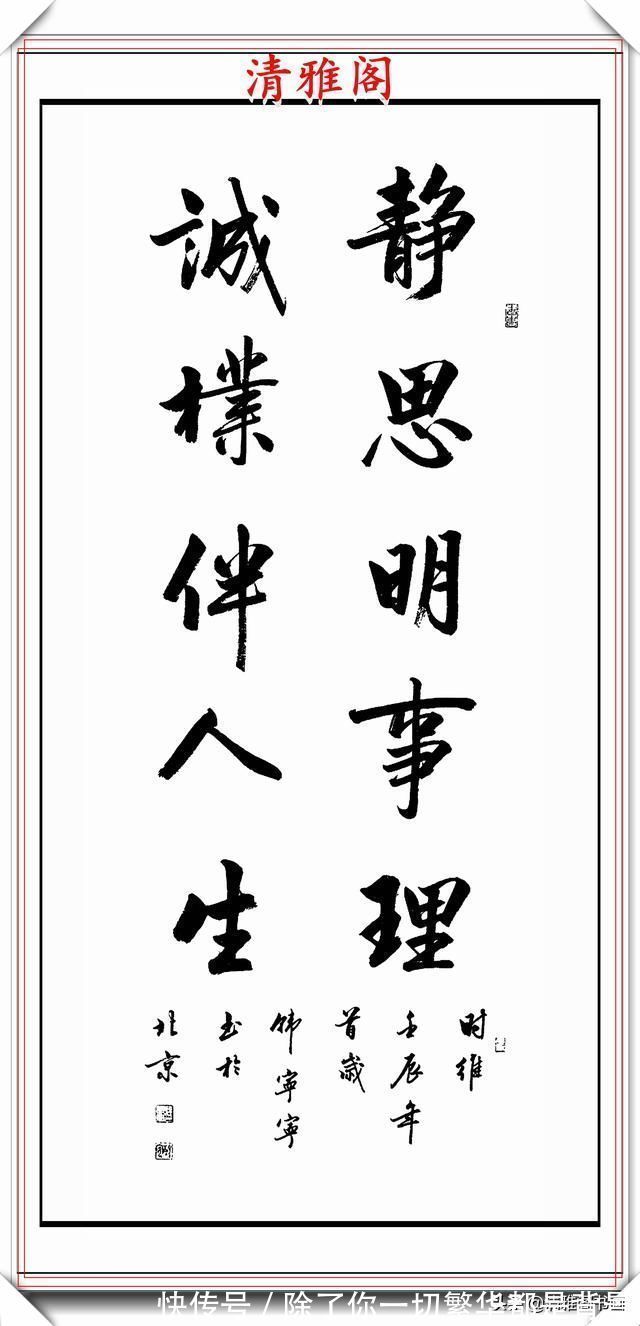 清雅阁
静思明事理
誠樸伴人生
时维
壬辰年
首歲
韩寧寧
书於
北京
快传号/除了你一切繁华都是背景